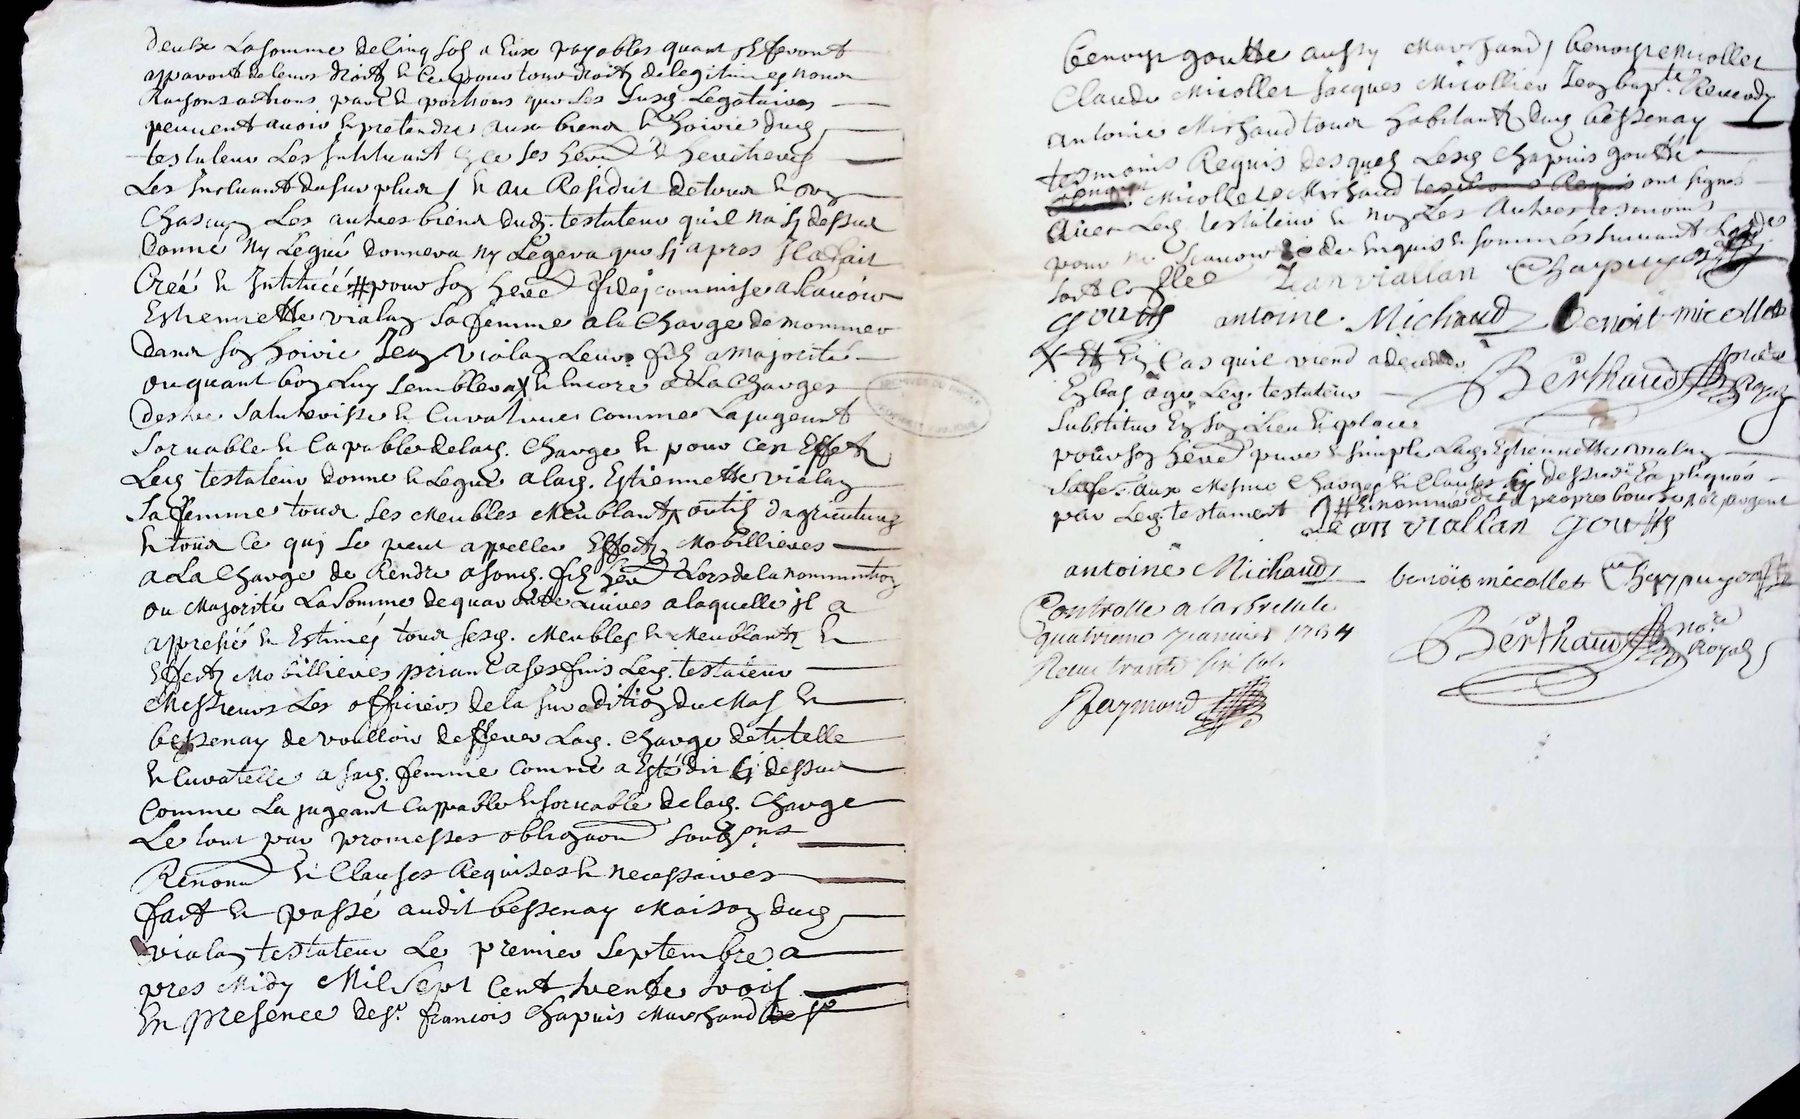 deulx La somme de Cinq sols a Eux payables quant Ils feront
apparoir de leurs droits & Ce pour tous droits de legitimes noms
Raisons actions part & portions que Les susd. Legataires
peuvent avoir & pretendre aux biens & hoirie dud
testateur Les Instituant & ses hers & heritieres
Les Incluant du surplus / & au Residut de tous & ung
Chascung Les autres biens dud. testateur quil na sy dessus
donné Ny Legué donnera ny Legera que sj apres Il a fait
Créé & Institué # pour son here fidej commise a scavoir
Estiennette vialan sa femme a la Charge de nommer
dans son hoirie Jean Vialan Leur fils a majorité
ou quant bon Luy semblera X & Encore a La Charge
destre tutrice & Curatrice comme La jugeant
sortable & Capable de lad. Charge & pour Ces Effets
Led testateur donne & Legue a lad. Estiennette vialan
sa femme tous Ses Meubles Meublants outils dagriculture
& tout Ce quj se peut appeller Effects Mobillieres
a La Charge de Rendre a sond. fils here Lors de la nommination
ou Majorité La somme de quarante Livres a laquelle jl a
apresié & Estimés tous sesd. Meubles & Meublants &
Effects Mobillieres priant a ses fins Led. testateur
Messieurs Les officiers de la jurediction du Mas &
bessenay de voulloir defferer Lad. Charge de tutelle
& Curatelle a sad. femme Comme a Esté dit sj dessus
Comme La jugeant Cappable & sortable de lad. Charge
Le tout par promesses obligaon soubsons
Renonon & Clauses Requises & necessaires
fait & passé audit bessenay Maison dud
vialan testateur Le premier septembre a
pres Midy Mil sept Cent trente trois
En presence de sr. francois Chapuis Marchand
benoist goutte aussy Marchand / benoist micollet
Claude Micollet Jacques Micollier Jean bapte.
Antoine Michaud tous habitants dud bessenay
tesmoins Requis desquels Lesd Chapuis goutte
Micollet & Michaud ont signés
avec Led testateur & non Les Autres tesmoins
pour ne scavoir de ce Enquis & sommés suivant Lordce
Jean viallan Chapuy
goutte antoine Michaud benoit micollet
X Et En Cas quil viend a deceder
En bas age Led. testateur
Berthaud nore Royal
substitue En son Lieu & place
pour son here pure & simple Lad Estiennette vialan
sa fe. aux Mesme Charges & Clauses sy dessus Expliqués
par Led testament # & nommé de sa propre bouche
Jean viallan goutte
antoine Michaud benoit micollet Chapuy
Controllé a la bresle le
quatrieme Janvier 1734
Receu trante six sols
Raymond
Berthaud nore Royal